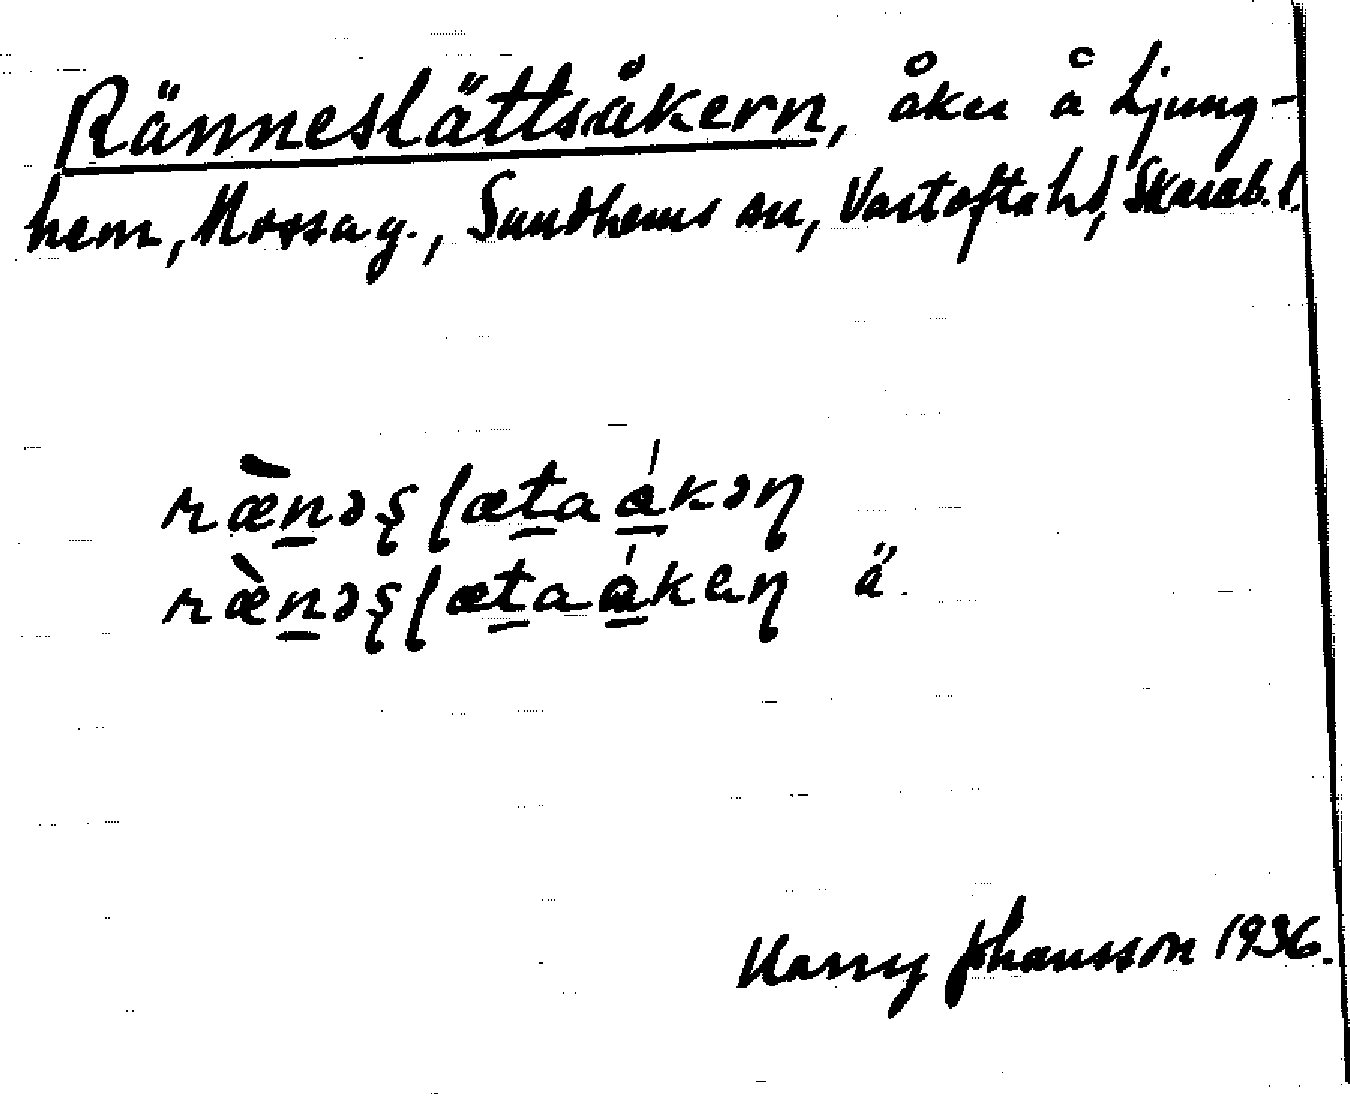 Ränneslättsåkern, åker å Ljung-
hem, Mossag., Sundhems sn, Vartofta hd, Skarab. l.
ræ̀nəʂɭætaákəɳ
ræ̀nəʂɭætaákeɳ ä.
Harry Johansson 1936.